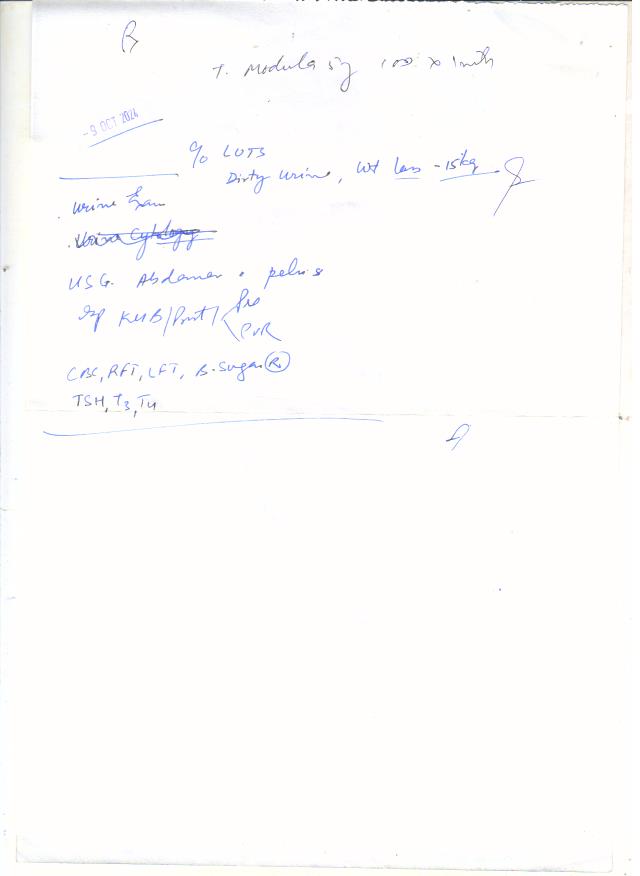 Rx
T. Modula 5g 100 x 1 mth
- 9 OCT 2024
c/o LUTS
Dirty urine, wt loss - 15kg
. Urine Exam
. Urine Cytology
USG. Abdomen + pelvis
KUB/Prost/ Pre
PVR
CBC, RFT, LFT, B. Sugar (R)
TSH, T3, T4